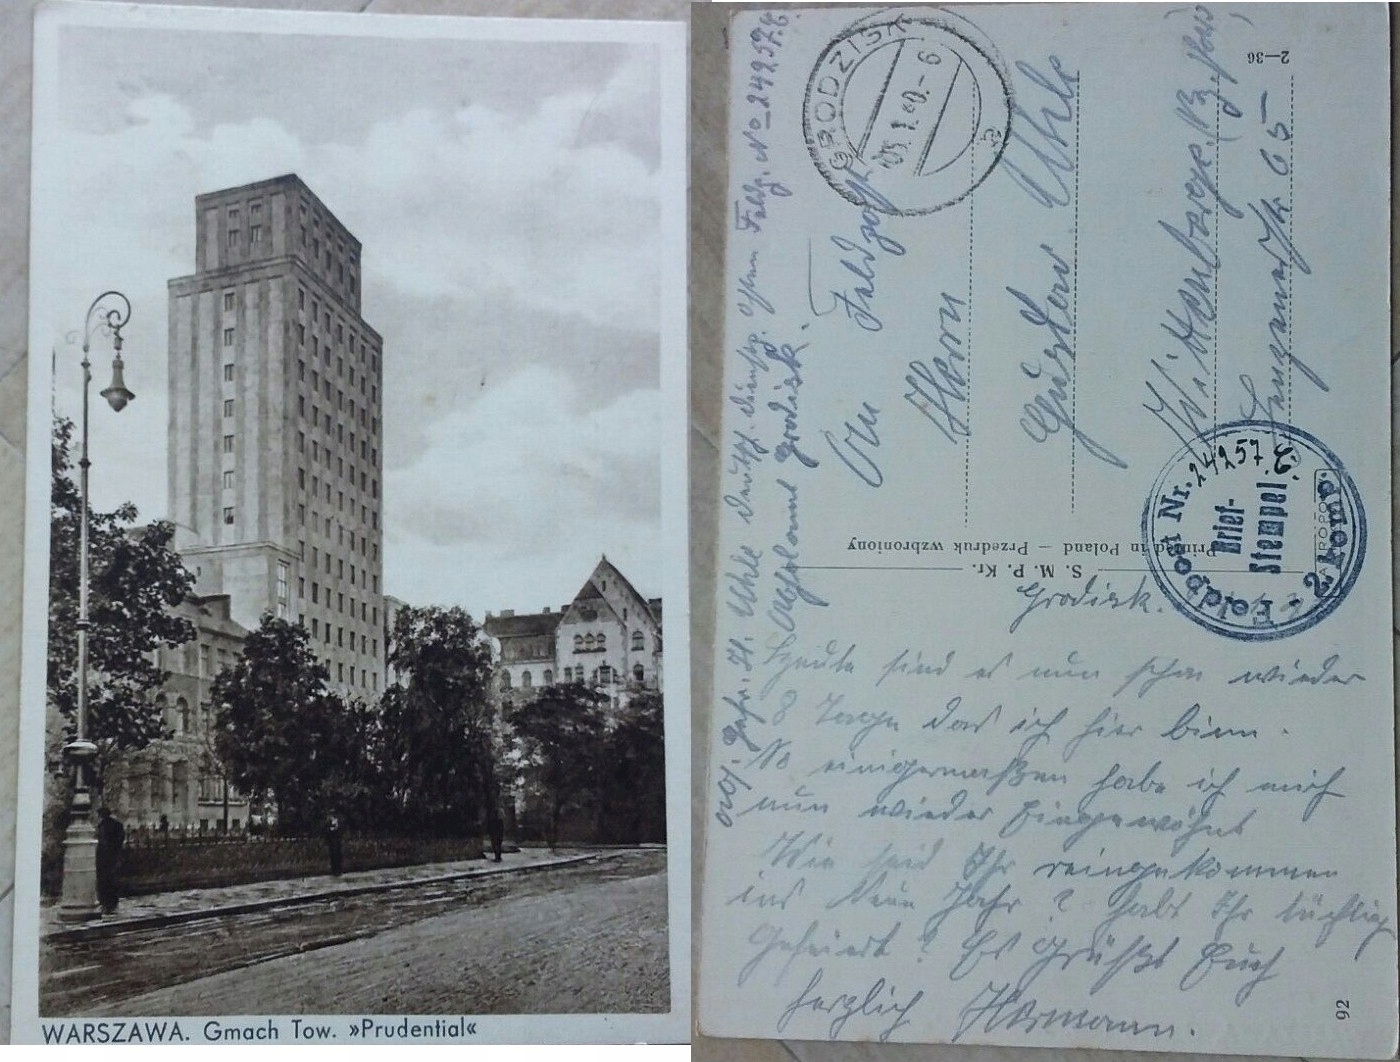 WARSZAWA. Gmach Tow. »Prudential«
Grodisk.
Heute sind es nun schon wieder
8 Tage das ich hier binn.
So einigermaßen habe ich mich
nun wieder Eingewöhnt
Wie seid Ihr reingekommen
ins Neue Jahr? habt Ihr tüchtig
Gefeiert? Es Grüßt Euch
herzlich Hermann.
S. M. P. Kr.
Printed in Poland — Przedruk wzbroniony
2—36
92
An Feldpost
Herrn
Gustav Uhle
Wittenberge (Bz. Pots)
65
GRODZISK
05.1.40.-6
Feldpost Nr. 24257 C
Brief-
Stempel
2. Komp.
Abs. Gefr. H. Uhle Deutsch. Dienstp. Osten Feldp. No 24257 C
Postamt Grodisk.